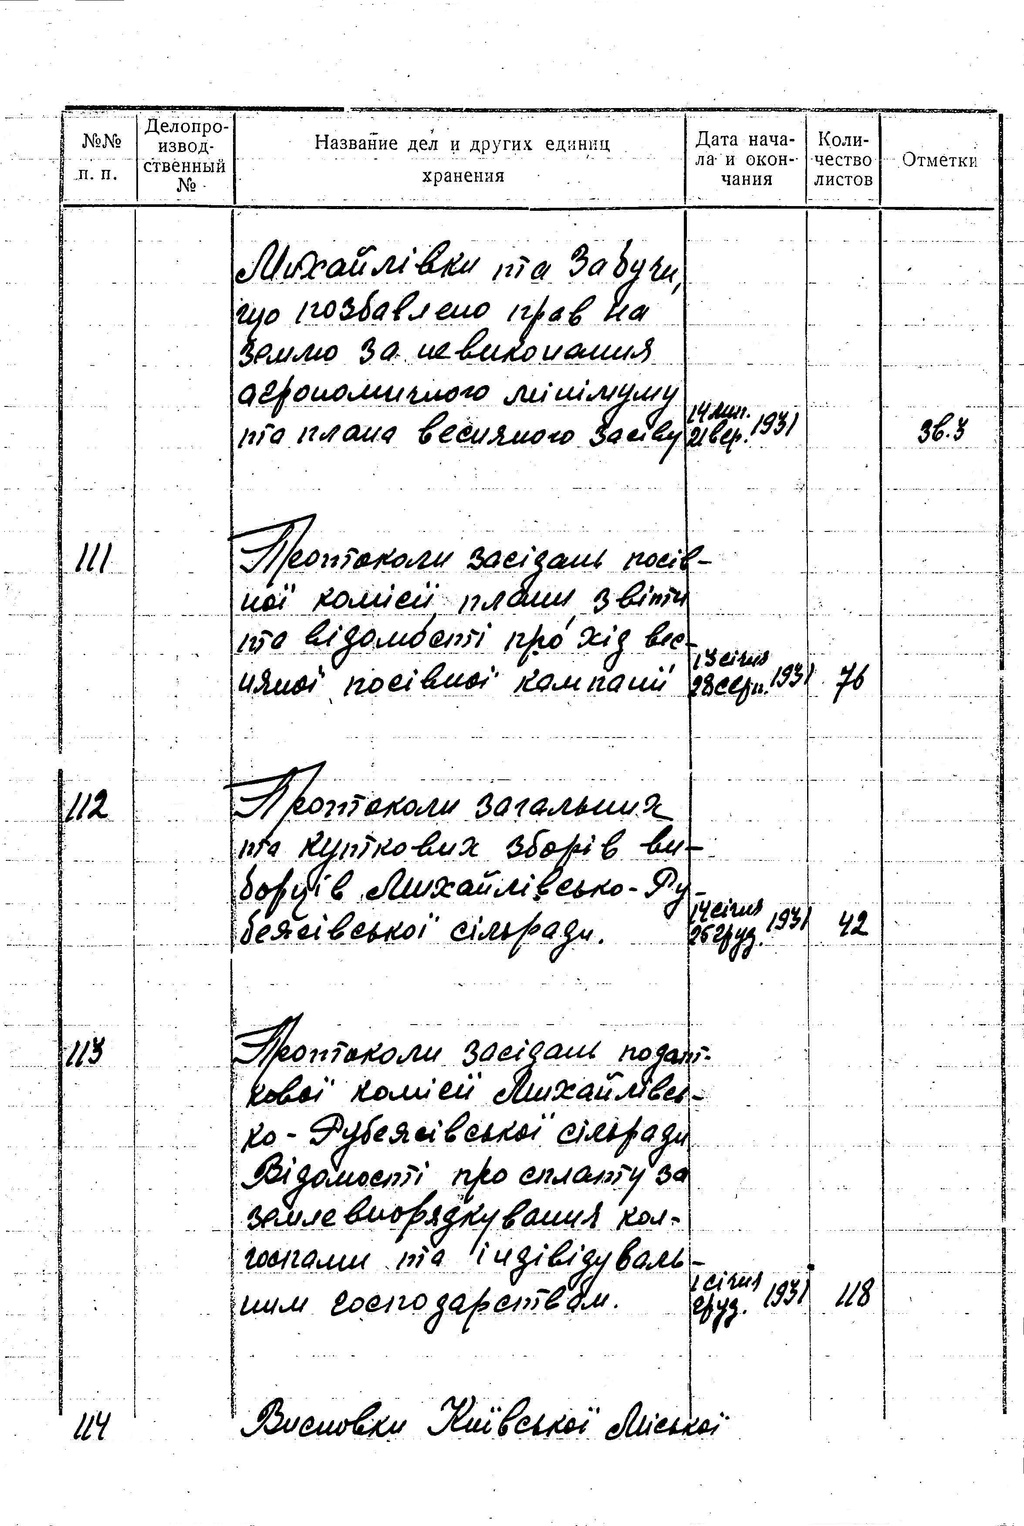 №№ п. п. | Делопроизводственный № | Название дел и других единиц хранения | Дата начала и окончания | Количество листов | Отметки
Михайлівки та Забучи,
що позбавлено прав на
землю за невиконання
агрономичного мінімуму
та плана весняного засіву 14 лип. 21 вер. 1931 Зв.3
111 Протоколи засідань посів-
ної комісії, плани, звіти
та відомості про хід вес-
няної посівної кампанії 13 січня 28 серп. 1931 76
112 Протоколи загальних
та куткових зборів ви-
борців Михайлівсько-Ру-
бежівської сільради. 14 січня 25 груд. 1931 42
113 Протоколи засідань подат-
кової комісії Михайлівсь-
ко-Рубежівської сільради
Відомості про сплату за
землевпорядкування кол-
госпами та індівідуваль-
ним господарствам. 1 січня груд. 1931 118
114 Висновки Київської Міської